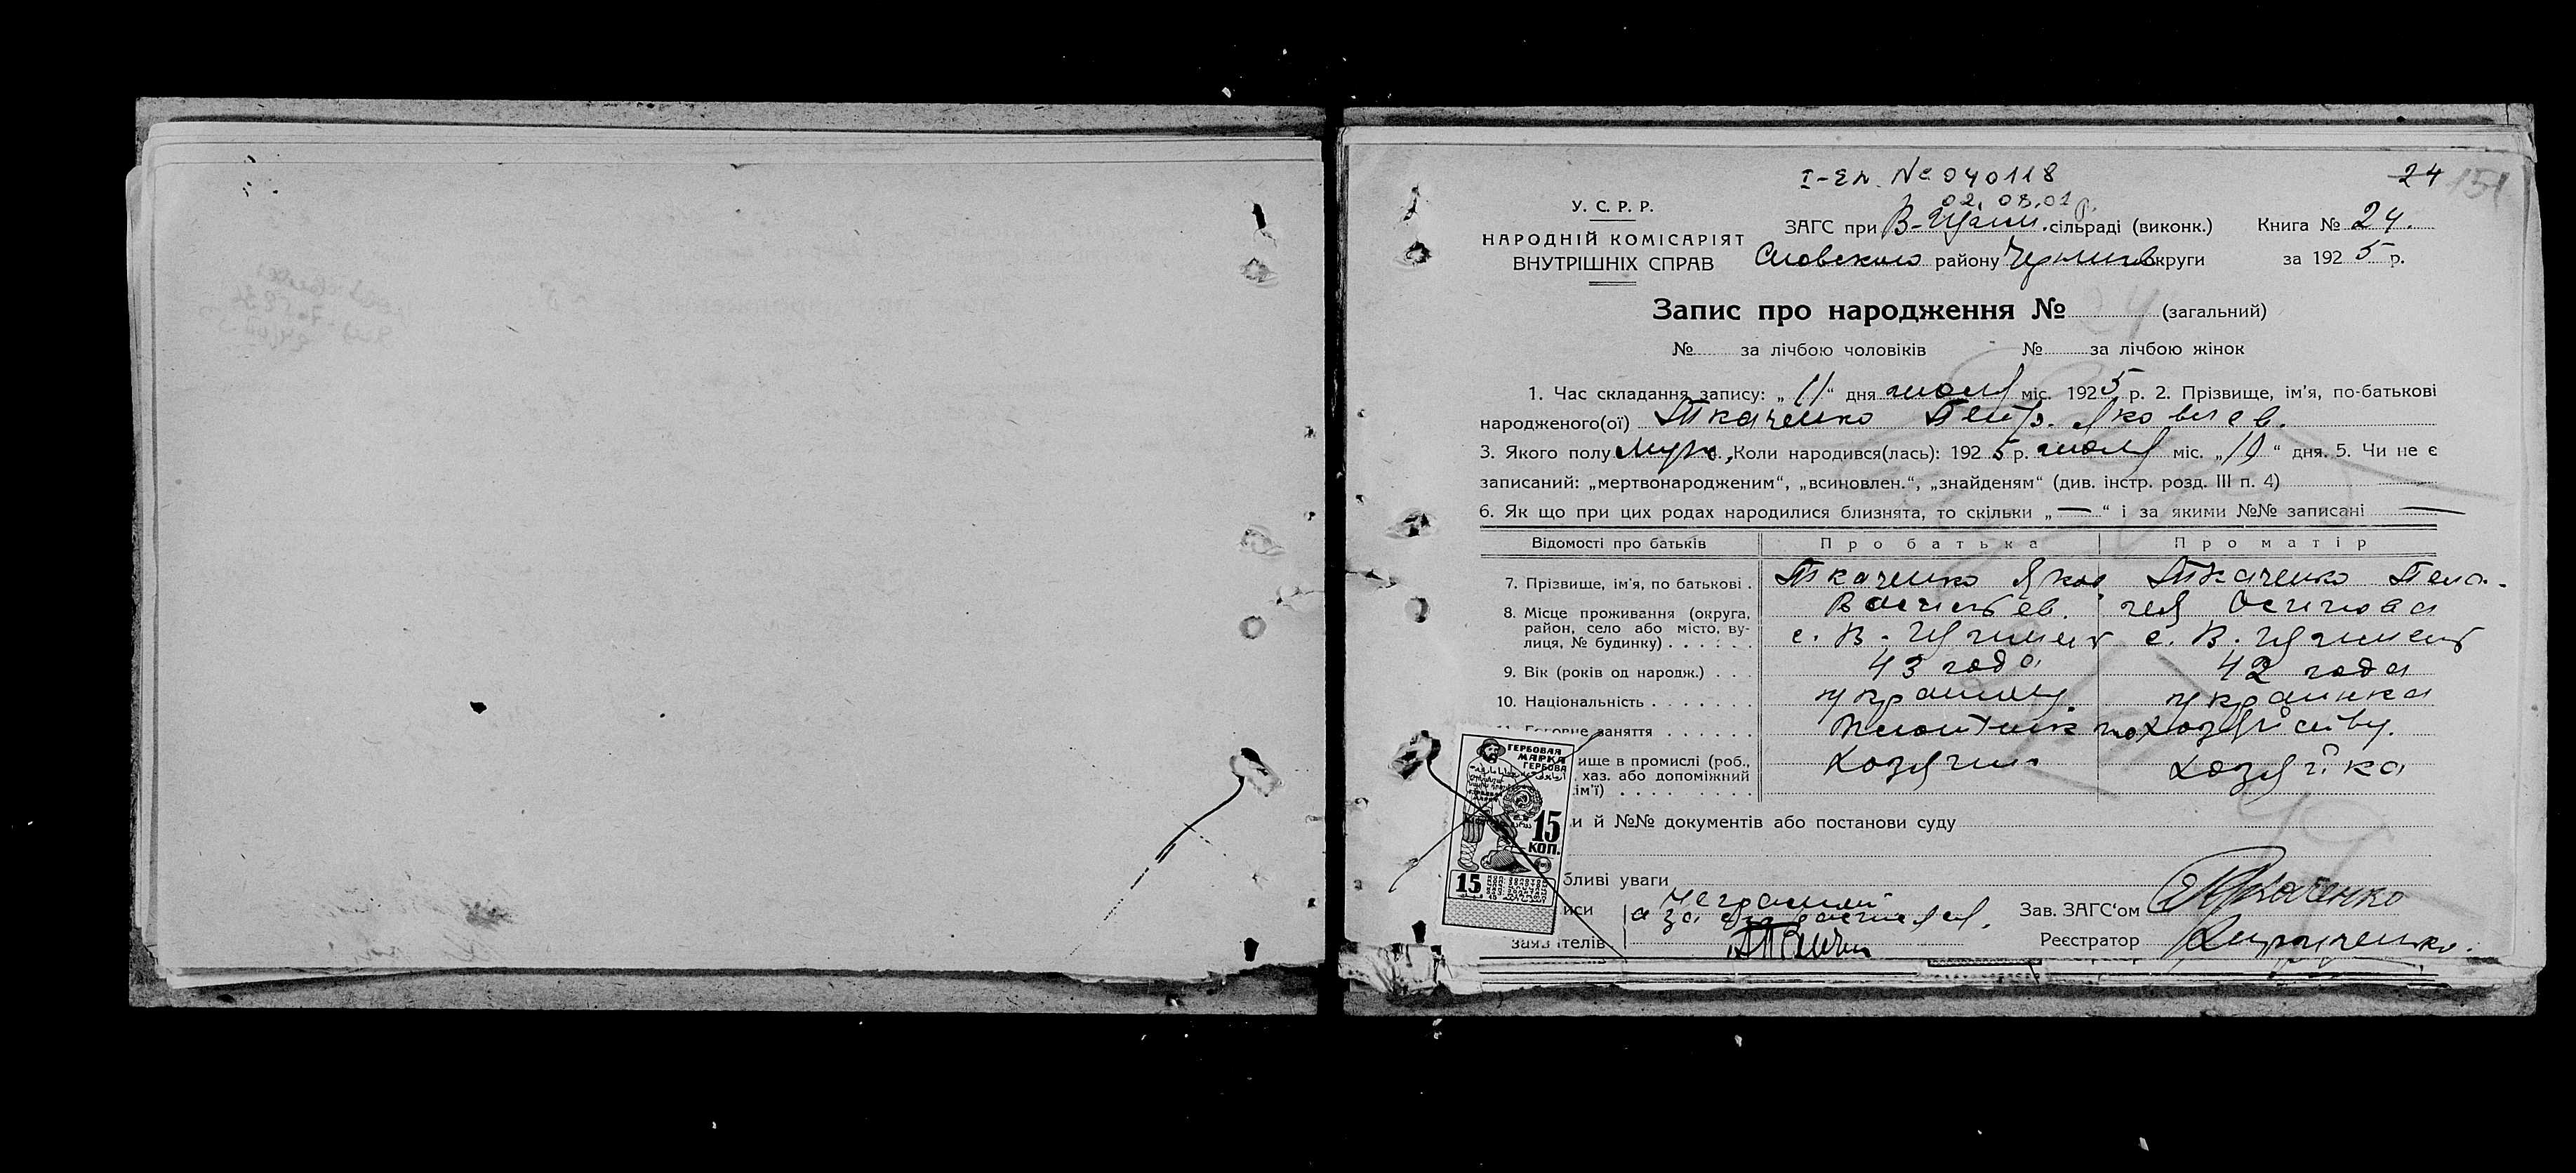 І-ЕЛ. № 040118
02.08.01 р.
24 151
У. С. Р. Р.
НАРОДНІЙ КОМІСАРІЯТ
ВНУТРІШНІХ СПРАВ
ЗАГС при сільраді (виконк.) Книга № 24.
району Чернигов округи за 1925 р.
Запис про народження № 24 (загальний)
№ за лічбою чоловіків № за лічбою жінок
1. Час складання запису: „11“ дня июля міс. 1925 р. 2. Прізвище, ім’я, по-батькові
народженого(ої) Ткаченко Петр. Яковлев.
3. Якого полу Муж., Коли народився(лась): 1925 р. июля міс. „10“ дня. 5. Чи не є
записаний: „мертвонародженим“, „всиновлен.“, „знайденям“ (див. інстр. розд. III п. 4) —
6. Як що при цих родах народилися близнята, то скільки „—“ і за якими №№ записані —
Відомості про батьків Про батька Про матір
7. Прізвище, ім’я, по батькові . Ткаченко Яков Ткаченко Пела-
Васильев. гея Осипова
8. Місце проживання (округа,
район, село або місто, ву-
лиця, № будинку) . . . . . . с. В. с. В.
9. Вік (років од народж.) . . . 43 года 42 года
10. Національність . . . . . . . украинец украинка
заняття . . . . . . Плотник по хозяйству.
ище в промислі (роб.,
хаз. або допоміжний
ім’ї) . . . . . . . . Хозяин Хозяйка
и й №№ документів або постанови суду
бливі уваги
иси а неграмотн
за
заявителів
Зав. ЗАГС‘ом Ткаченко
Реєстратор
ГЕРБОВАЯ
МАРКА
ГЕРБОВА
15
КОП.
15